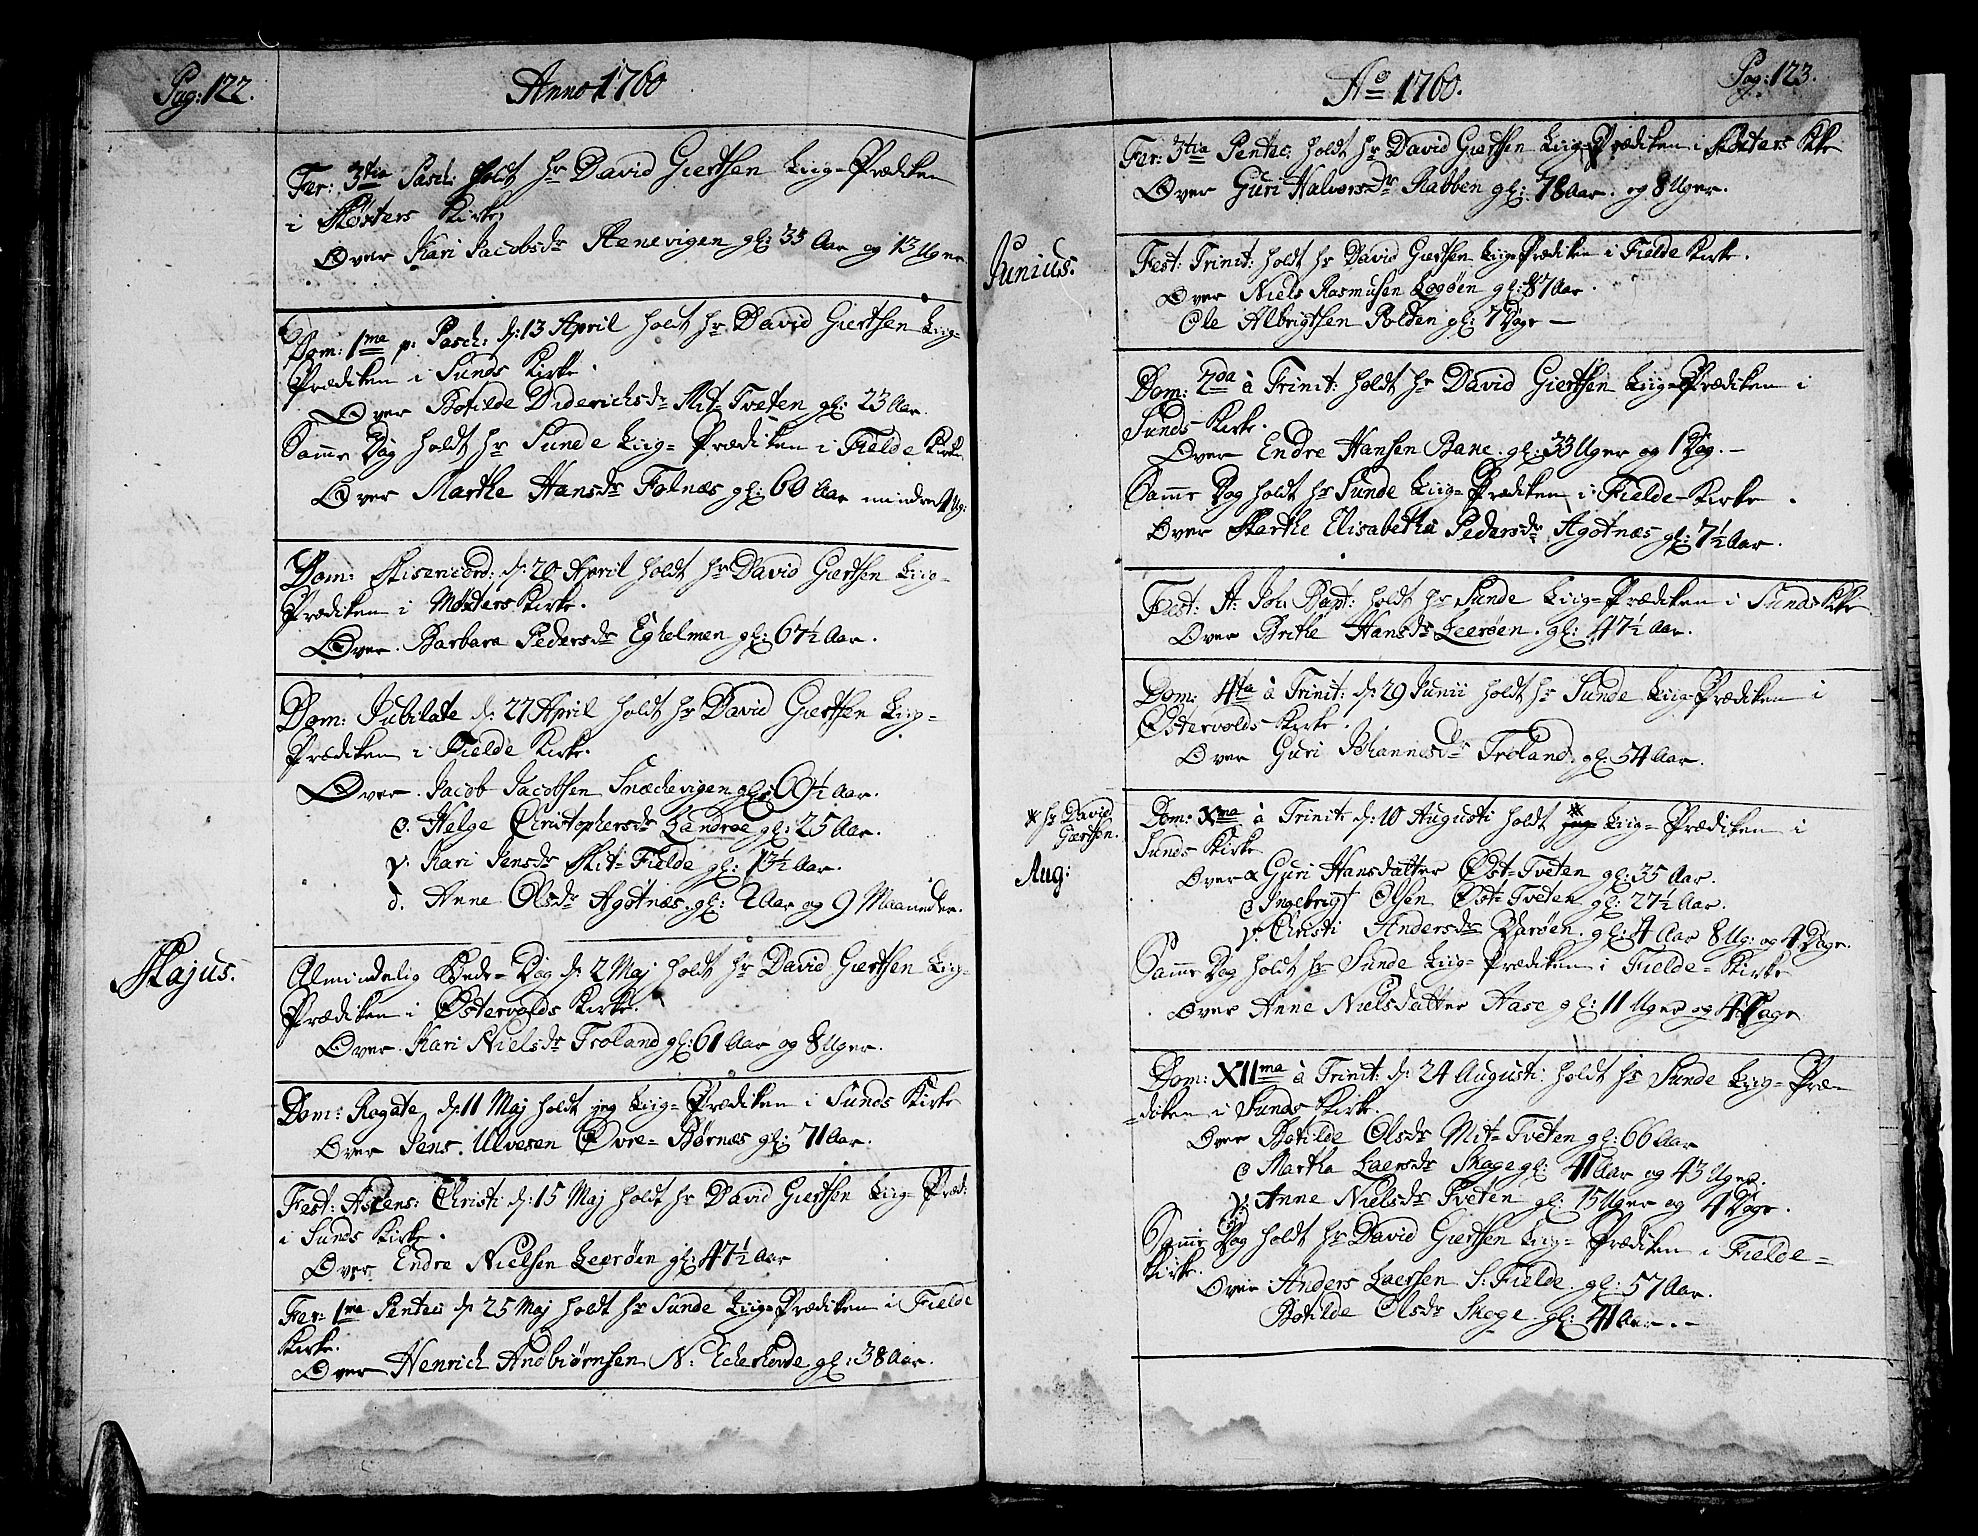 Pag: 122.
Anno 1760
Fer: 3tia Pasch: holdt hr David Giertsen Liig-Prædiken
i Møsters Kirke
Over Kari Jacobsdr Steenevigen gl: 35 Aar og 13 Uger
Dom: 1ma p: Pasch: d: 13 April holdt hr David Giertsen Liig-
Prædiken i Sunds Kirke.
Over Botilde Diderichsdr Mit-Tveten gl: 23 Aar.
Samme Dag holdt hr Sunde Liig-Prædiken i Fielde Kirke
Over Marthe Hansdr Folnæs gl: 60 Aar mindre 4 Ug:
Dom: Misericord: d: 20 April holdt hr David Giertsen Liig-
Prædiken i Møsters Kirke.
Over Barbara Pedersdr Egholmen gl: 67½ Aar.
Dom: Jubilate d: 27 April holdt hr David Giertsen Liig-
Prædiken i Fielde Kirke.
Over Jacob Jacobsen Snedevigen gl: 60½ Aar.
Helge Christophersdr Landroe gl: 25 Aar.
Kari Jensdr Mit-Fielde gl: 1½ Aar.
d. Anne Olsdr Agotnæs gl: 2 Aar og 9 Maaneder.
Majus.
Almindelig Bede-Dag d: 2 Maj holdt hr David Giertsen Liig-
Prædiken i Østervolds Kirke.
Over Kari Nielsdr Troland gl: 61 Aar og 8 Uger.
Dom: Rogate d: 11 Maj holdt jeg Liig-Prædiken i Sunds Kirke
Over Jens Ulvesen Øvre-Børnæs gl: 71 Aar.
Fest: Ascens: Christi d: 15 Maj holdt hr David Giertsen Liig-Præd:
i Sunds Kirke.
Over Endre Nielsen Leerøen gl: 47½ Aar
Fer: 1ma Pentec d: 25 Maj holdt hr Sunde Liig-Prædiken i Fielde
Kirke.
Over Henrich Andbiørnsen N: Eckerhovde gl: 38 Aar.
Ao 1760.
Pag: 123.
Fer: 3tia Pentec: holdt hr David Giertsen Liig-Prædiken i Møsters Kke
Over Guri Halvorsdr Rabben gl: 78 Aar og 8 Uger.
Junius.
Fest: Trinit: holdt hr David Giertsen Liig-Prædiken i Fielde Kirke.
Over Niels Rasmusen Logøen gl: 87 Aar.
Ole Albrigtsen Polden gl: 7 Dage –
Dom: 2da à Trinit: holdt hr David Giertsen Liig-Prædiken i
Sunds Kirke.
Over Endre Hansen Bane gl: 33 Uger og 1 Dag. –
Samme Dag holdt hr Sunde Liig-Prædiken i Fielde-Kirke.
Over Marthe Elisabetha Pedersdr Agotnæs gl: 7½ Aar.
Fest: St: Joh: Bapt: holdt hr Sunde Liig-Prædiken i Sunds Kke
Over Brithe Hansdr Leerøen gl: 47½ Aar.
Dom: 4ta à Trinit: d: 29 Junii holdt hr Sunde Liig-Prædiken i
Østervolds Kirke.
Over Guri Johannesdr Troland gl: 54 Aar.
* hr David
Giertsen.
Aug:
Dom: Xma à Trinit: d: 10 Augusti holdt * jeg Liig-Prædiken i
Sunds Kirke
Over α Guri Hansdatter Øst-Tveten gl: 35 Aar.
Ingebrigt Olsen Øst-Tveten gl: 27½ Aar.
γ. Christi Andersdr Barøen gl: 4 Aar 8 Ug: og 4 Dage.
Samme Dag holdt hr Sunde Liig-Prædiken i Fielde-Kirke
Over Anne Nielsdatter Aase gl: 11 Uger og 4 Dage
Dom: XIIma à Trinit: d: 24 Augusti holdt hr Sunde Liig-Præ-
-diken i Sunds Kirke.
Over Botilde Olsdr Mit-Tveten gl: 66 Aar
Martha Laersdr Skoge gl: 41 Aar og 43 Uger.
γ. Anne Nielsdr Tveten gl: 15 Uger og 4 Dage.
Samme Dag holdt hr David Giertsen Liig-Prædiken i Fielde-
Kirke.
Over Anders Laersen S: Fielde gl: 57 Aar.
Botilde Olsdr Skoge gl: 41 Aar. –